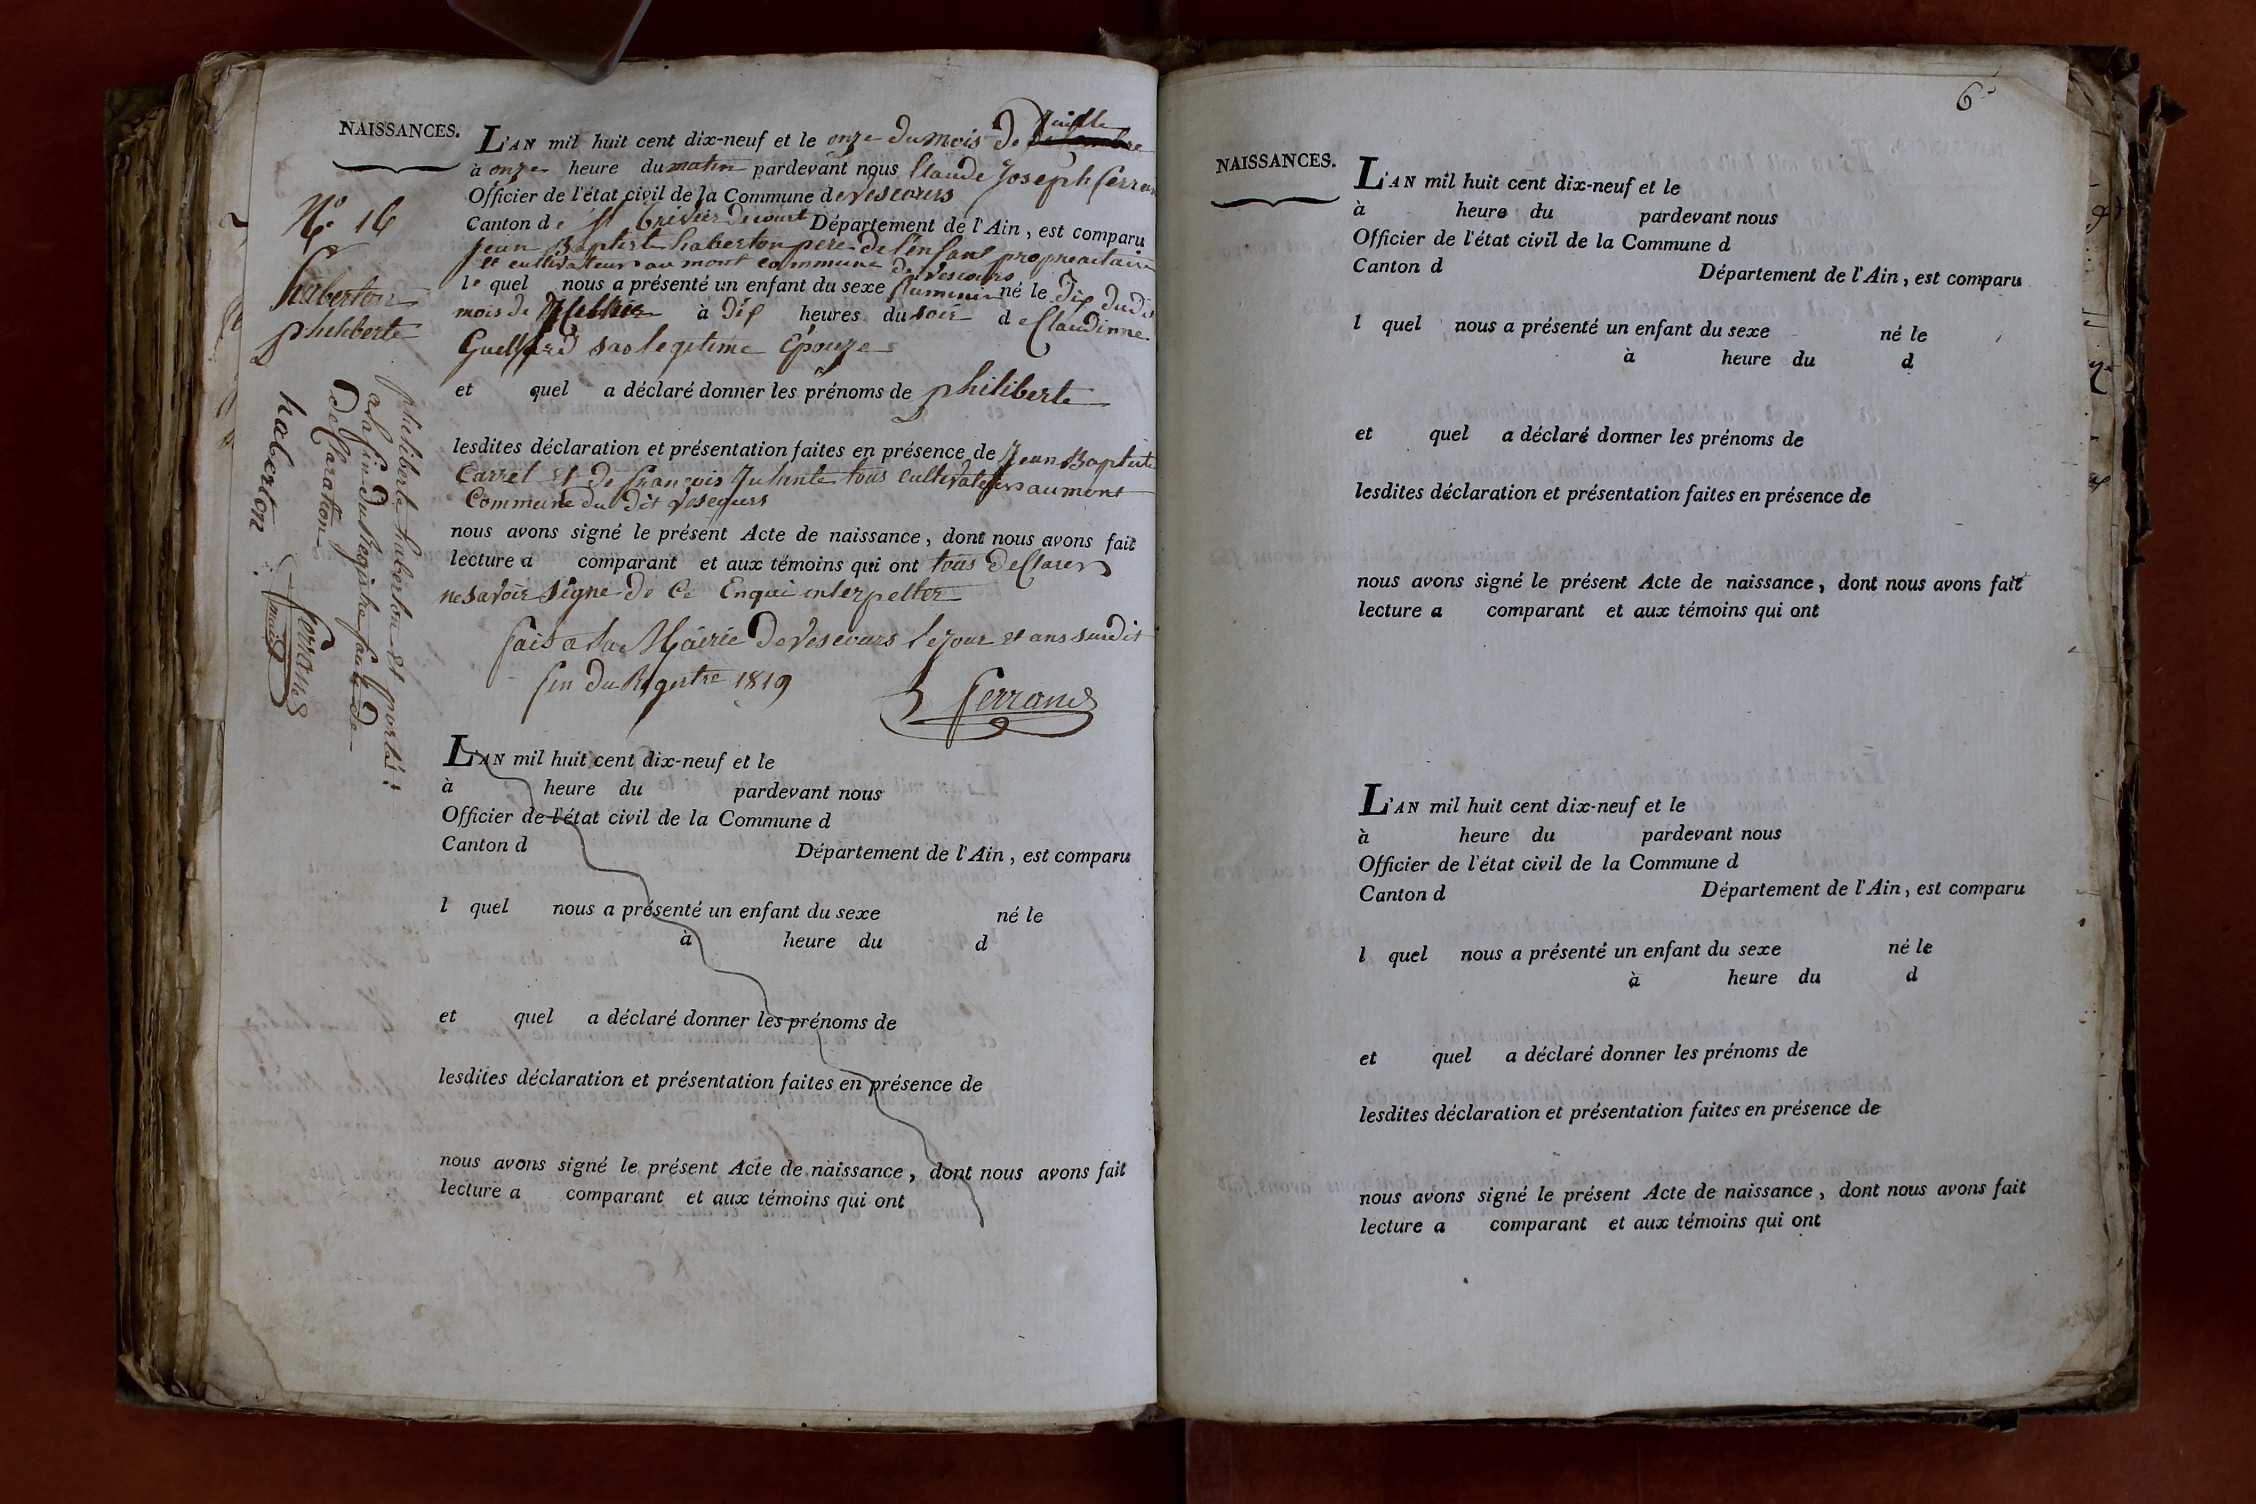 NAISSANCES.
L'AN mil huit cent dix-neuf et le onze du mois de juillet
à onze heure du matin pardevant nous Claude Joseph ferrand
Officier de l'état civil de la Commune de vescours
Canton de St trivier de court Département de l'Ain, est comparu
jean Baptiste haberton pere de l'enfant propriétaire
et cultivateur au mont commune de vescours
le quel nous a présenté un enfant du sexe né le dix du dit
mois de à dix heures du soir de Claudinne
legitime Epouze
et quel a déclaré donner les prénoms de philiberte
lesdites déclaration et présentation faites en présence de Jean Baptiste
Carrel et de françois tous cultivateurs au mont
Commune du dit vescours
nous avons signé le présent Acte de naissance, dont nous avons fait
lecture a comparant et aux témoins qui ont tous declarer
ne savoir signe de ce Enqui interpeller
fait a la Mairie de vescours le jour et ans susdit
fin du Registre 1819
ferrand
No. 16
haberton
philiberte
philiberte haberton et porté
a la fin du Registre faute de
declaration
haberton
ferrand
L'AN mil huit cent dix-neuf et le
à heure du pardevant nous
Officier de l'état civil de la Commune d
Canton d Département de l'Ain, est comparu
l quel nous a présenté un enfant du sexe né le
à heure du d
et quel a déclaré donner les prénoms de
lesdites déclaration et présentation faites en présence de
nous avons signé le présent Acte de naissance, dont nous avons fait
lecture a comparant et aux témoins qui ont
NAISSANCES.
L'AN mil huit cent dix-neuf et le
à heure du pardevant nous
Officier de l'état civil de la Commune d
Canton d Département de l'Ain, est comparu
l quel nous a présenté un enfant du sexe né le
à heure du d
et quel a déclaré donner les prénoms de
lesdites déclaration et présentation faites en présence de
nous avons signé le présent Acte de naissance, dont nous avons fait
lecture a comparant et aux témoins qui ont
L'AN mil huit cent dix-neuf et le
à heure du pardevant nous
Officier de l'état civil de la Commune d
Canton d Département de l'Ain, est comparu
l quel nous a présenté un enfant du sexe né le
à heure du d
et quel a déclaré donner les prénoms de
lesdites déclaration et présentation faites en présence de
nous avons signé le présent Acte de naissance, dont nous avons fait
lecture a comparant et aux témoins qui ont